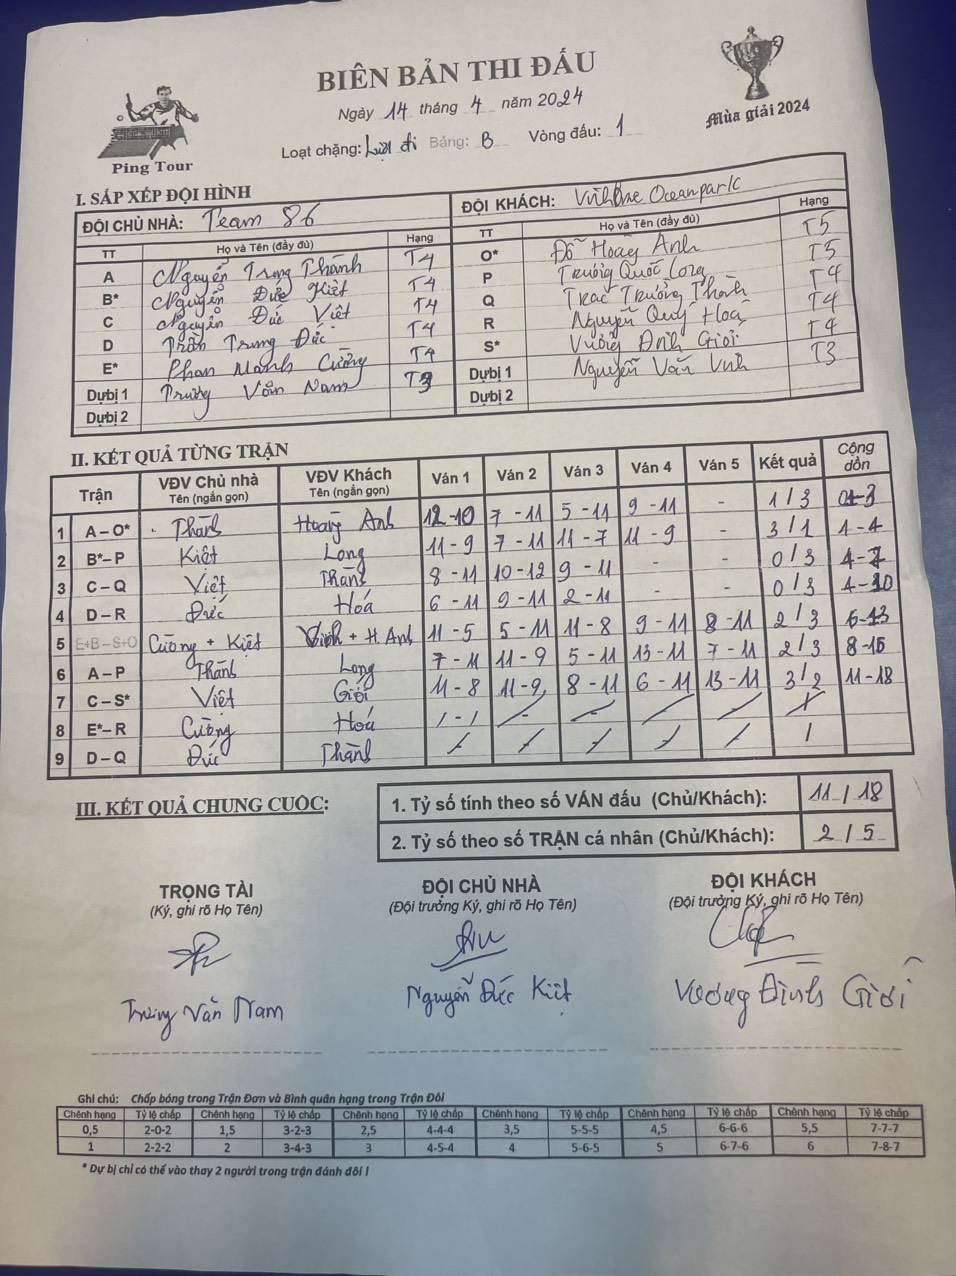 BIÊN BẢN THI ĐẤU
Ngày 14 tháng 4 năm 2024
Loạt chặng: Lượt đi Bảng: B Vòng đấu: 1
Ping Tour
Mùa giải 2024
I. SẮP XẾP ĐỘI HÌNH
ĐỘI CHỦ NHÀ: Team 86 ĐỘI KHÁCH: Oceanpark
TT Họ và Tên (đầy đủ) Hạng TT Họ và Tên (đầy đủ) Hạng
A Nguyễn Trọng Thành T4 O* Đỗ Hoàng Anh T5
B* Nguyễn Đức Kiệt T4 P Trương Quốc Long T5
C Nguyễn Đức Việt T4 Q Trường Thành T4
D Trần Trung Đức T4 R Nguyễn Quý Hoá T4
E* Phan Mạnh Cường T4 S* Vương Đình Giới T4
Dự bị 1 Trương Văn Nam T3 Dự bị 1 Nguyễn Văn Vinh T3
Dự bị 2 Dự bị 2
II. KẾT QUẢ TỪNG TRẬN
Trận VĐV Chủ nhà Tên (ngắn gọn) VĐV Khách Tên (ngắn gọn) Ván 1 Ván 2 Ván 3 Ván 4 Ván 5 Kết quả Cộng dồn
1 A – O* Thành Hoàng Anh 12-10 7-11 5-11 9-11 - 1/3 1-3
2 B* – P Kiệt Long 11-9 7-11 11-7 11-9 - 3/1 4-4
3 C – Q Việt Thành 8-11 10-12 9-11 - - 0/3 4-7
4 D – R Đức Hoá 6-11 9-11 2-11 - - 0/3 4-10
5 E+B – S+O Cường + Kiệt Vinh + H Anh 11-5 5-11 11-8 9-11 8-11 2/3 6-13
6 A – P Thành Long 7-11 11-9 5-11 13-11 7-11 2/3 8-16
7 C – S* Việt Giới 11-8 11-9 8-11 6-11 13-11 3/2 11-18
8 E* – R Cường Hoá
9 D – Q Đức Thành
III. KẾT QUẢ CHUNG CUỘC:
1. Tỷ số tính theo số VÁN đấu (Chủ/Khách): 11/18
2. Tỷ số theo số TRẬN cá nhân (Chủ/Khách): 2/5
TRỌNG TÀI ĐỘI CHỦ NHÀ ĐỘI KHÁCH
(Ký, ghi rõ Họ Tên) (Đội trưởng Ký, ghi rõ Họ Tên) (Đội trưởng Ký, ghi rõ Họ Tên)
Trương Văn Nam Nguyễn Đức Kiệt Vương Đình Giới
Ghi chú: Chấp bóng trong Trận Đơn và Bình quân hạng trong Trận Đôi
Chênh hạng Tỷ lệ chấp Chênh hạng Tỷ lệ chấp Chênh hạng Tỷ lệ chấp Chênh hạng Tỷ lệ chấp Chênh hạng Tỷ lệ chấp Chênh hạng Tỷ lệ chấp
0,5 2-0-2 1,5 3-2-3 2,5 4-4-4 3,5 5-5-5 4,5 6-6-6 5,5 7-7-7
1 2-2-2 2 3-4-3 3 4-5-4 4 5-6-5 5 6-7-6 6 7-8-7
* Dự bị chỉ có thể vào thay 2 người trong trận đánh đôi !